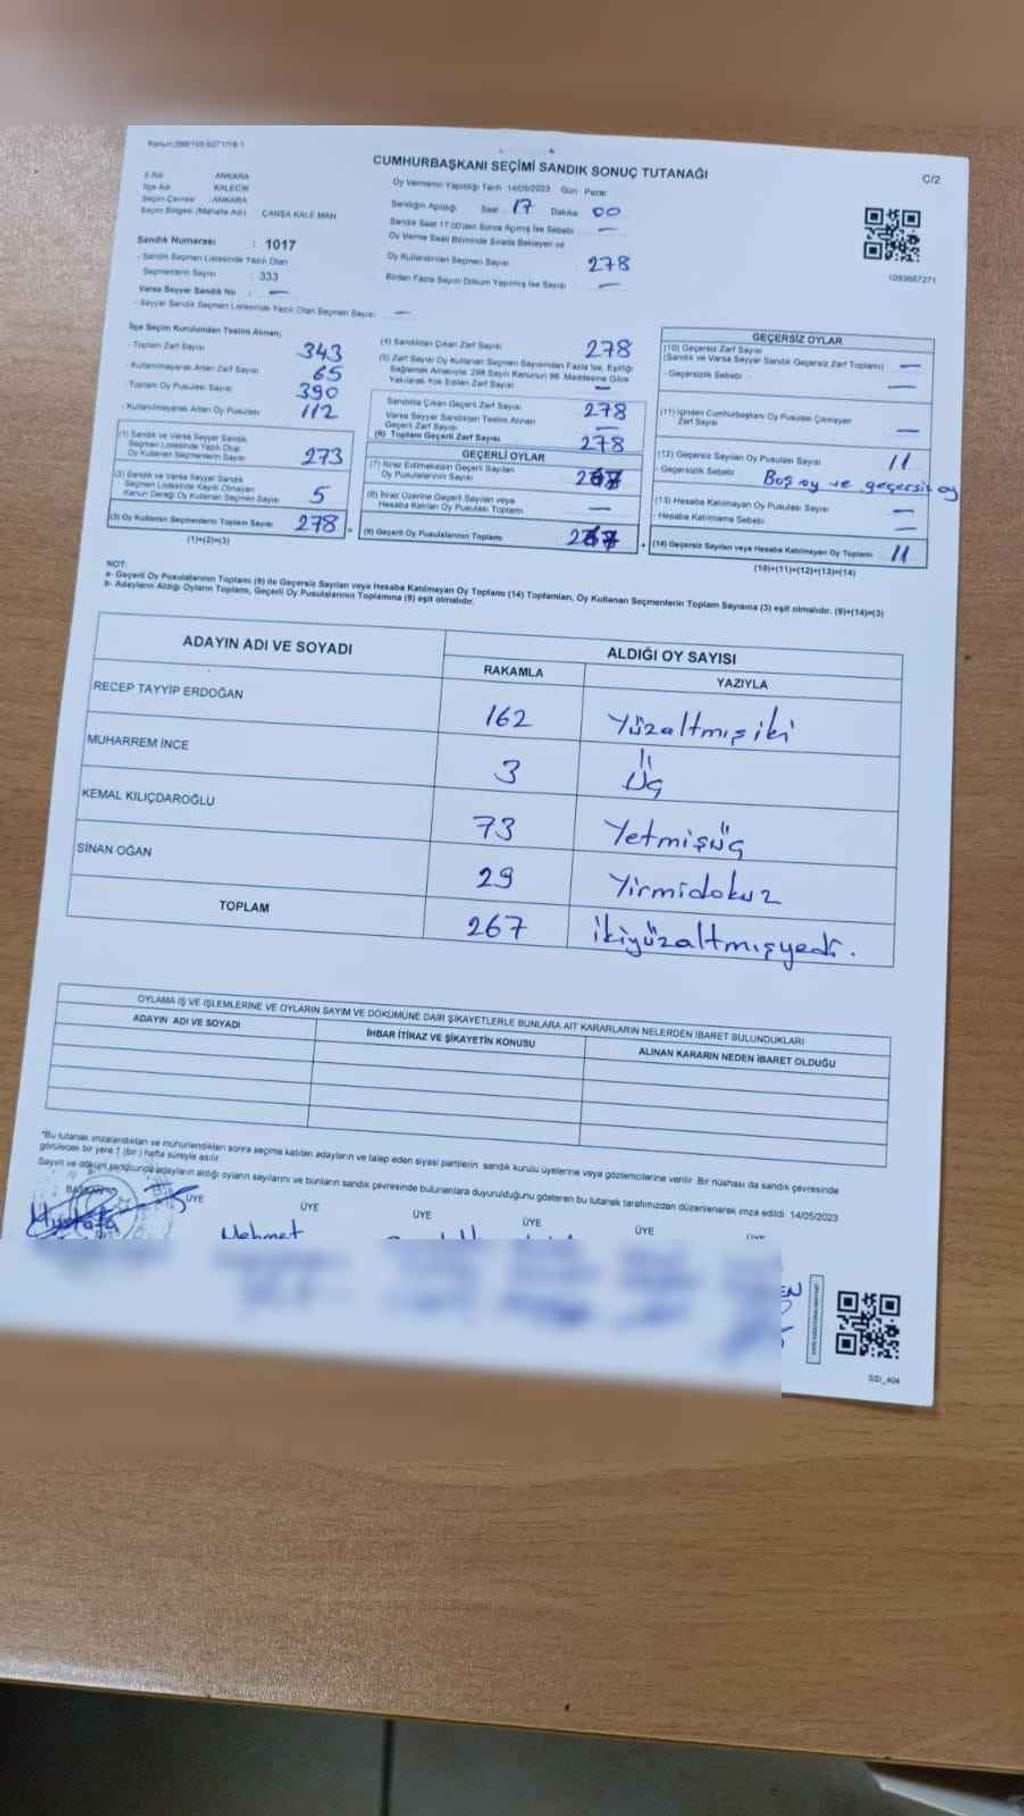 Kanun:298/105,6271/18-1
CUMHURBAŞKANI SEÇİMİ SANDIK SONUÇ TUTANAĞI
C/2
İl Adı ANKARA
İlçe Adı KALECİK
Seçim Çevresi : ANKARA
Seçim Bölgesi (Mahalle Adı) : CANSA KALE MAH
Sandık Numarası : 1017
- Sandık Seçmen Listesinde Yazılı Olan
Seçmenlerin Sayısı : 333
Varsa Seyyar Sandık No : —
- Seyyar Sandık Seçmen Listesinde Yazılı Olan Seçmen Sayısı : —
Oy Vermenin Yapıldığı Tarih 14/05/2023 Gün Pazar
Sandığın Açıldığı Saat 17 Dakika 00
Sandık Saat 17.00'den Sonra Açılmış İse Sebebi —
Oy Verme Saati Bitiminde Sırada Bekleyen ve
Oy Kullandırılan Seçmen Sayısı 278
Birden Fazla Sayım Döküm Yapılmış İse Sayısı —
1093667271
İlçe Seçim Kurulundan Teslim Alınan;
- Toplam Zarf Sayısı 343
- Kullanılmayarak Artan Zarf Sayısı 65
- Toplam Oy Pusulası Sayısı 390
- Kullanılmayarak Artan Oy Pusulası 112
(1) Sandık ve Varsa Seyyar Sandık
Seçmen Listesinde Yazılı Olup
Oy Kullanan Seçmenlerin Sayısı 273
(2) Sandık ve Varsa Seyyar Sandık
Seçmen Listesinde Kayıtlı Olmayan
Kanun Gereği Oy Kullanan Seçmen Sayısı 5
(3) Oy Kullanan Seçmenlerin Toplam Sayısı 278
(1)+(2)=(3)
(4) Sandıktan Çıkan Zarf Sayısı 278
(5) Zarf Sayısı Oy Kullanan Seçmen Sayısından Fazla İse, Eşitliği
Sağlamak Amacıyla 298 Sayılı Kanunun 98. Maddesine Göre
Yakılarak Yok Edilen Zarf Sayısı —
Sandıkta Çıkan Geçerli Zarf Sayısı 278
Varsa Seyyar Sandıktan Teslim Alınan
Geçerli Zarf Sayısı —
(6) Toplam Geçerli Zarf Sayısı 278
GEÇERLİ OYLAR
(7) İtiraz Edilmeksizin Geçerli Sayılan
Oy Pusulalarının Sayısı 267
(8) İtiraz Üzerine Geçerli Sayılan veya
Hesaba Katılan Oy Pusulası Toplamı —
(9) Geçerli Oy Pusulalarının Toplamı 267
GEÇERSİZ OYLAR
(10) Geçersiz Zarf Sayısı
(Sandık ve Varsa Seyyar Sandık Geçersiz Zarf Toplamı) —
- Geçersizlik Sebebi —
(11) İçinden Cumhurbaşkanı Oy Pusulası Çıkmayan
Zarf Sayısı —
(12) Geçersiz Sayılan Oy Pusulası Sayısı 11
- Geçersizlik Sebebi Boş oy ve geçersiz oy
(13) Hesaba Katılmayan Oy Pusulası Sayısı —
- Hesaba Katılmama Sebebi —
(14) Geçersiz Sayılan veya Hesaba Katılmayan Oy Toplamı 11
(10)+(11)+(12)+(13)=(14)
NOT:
a- Geçerli Oy Pusulalarının Toplamı (9) ile Geçersiz Sayılan veya Hesaba Katılmayan Oy Toplamı (14) Toplamları, Oy Kullanan Seçmenlerin Toplam Sayısına (3) eşit olmalıdır. (9)+(14)=(3)
b- Adayların Aldığı Oyların Toplamı, Geçerli Oy Pusulalarının Toplamına (9) eşit olmalıdır.
ADAYIN ADI VE SOYADI ALDIĞI OY SAYISI
RAKAMLA YAZIYLA
RECEP TAYYİP ERDOĞAN 162 Yüzaltmışiki
MUHARREM İNCE 3 Üç
KEMAL KILIÇDAROĞLU 73 Yetmişüç
SİNAN OĞAN 29 Yirmidokuz
TOPLAM 267 ikiyüzaltmışyedi.
OYLAMA İŞ VE İŞLEMLERİNE VE OYLARIN SAYIM VE DÖKÜMÜNE DAİR ŞİKAYETLERLE BUNLARA AİT KARARLARIN NELERDEN İBARET BULUNDUKLARI
ADAYIN ADI VE SOYADI İHBAR İTİRAZ VE ŞİKAYETİN KONUSU ALINAN KARARIN NEDEN İBARET OLDUĞU
"Bu tutanak imzalandıktan ve mühürlendikten sonra seçime katılan adayların ve talep eden siyasi partilerin sandık kurulu üyelerine veya gözlemcilerine verilir. Bir nüshası da sandık çevresinde
görülecek bir yere 1 (bir) hafta süreyle asılır.
Sayım ve döküm sonucunda adayların aldığı oyların sayılarını ve bunların sandık çevresinde bulunanlara duyurulduğunu gösteren bu tutanak tarafımızdan düzenlenerek imza edildi. 14/05/2023
BAŞKAN ÜYE ÜYE ÜYE ÜYE ÜYE
Mustafa Mehmet
SSI_404